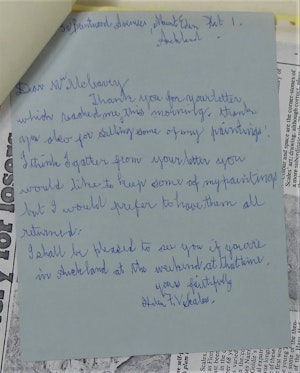 Brentwood Avenue, Mount Eden Akl 1.
Auckland.
Dear Mr
Thank you for your letter
which reached me this morning. thank
you also for selling some of my paintings.
I think I gather from your letter you
would like to keep some of my paintings
but I would prefer to have them all
returned.
I shall be pleased to see you if you are
in Auckland at the weekend at that time.
yours faithfully
ry for losers